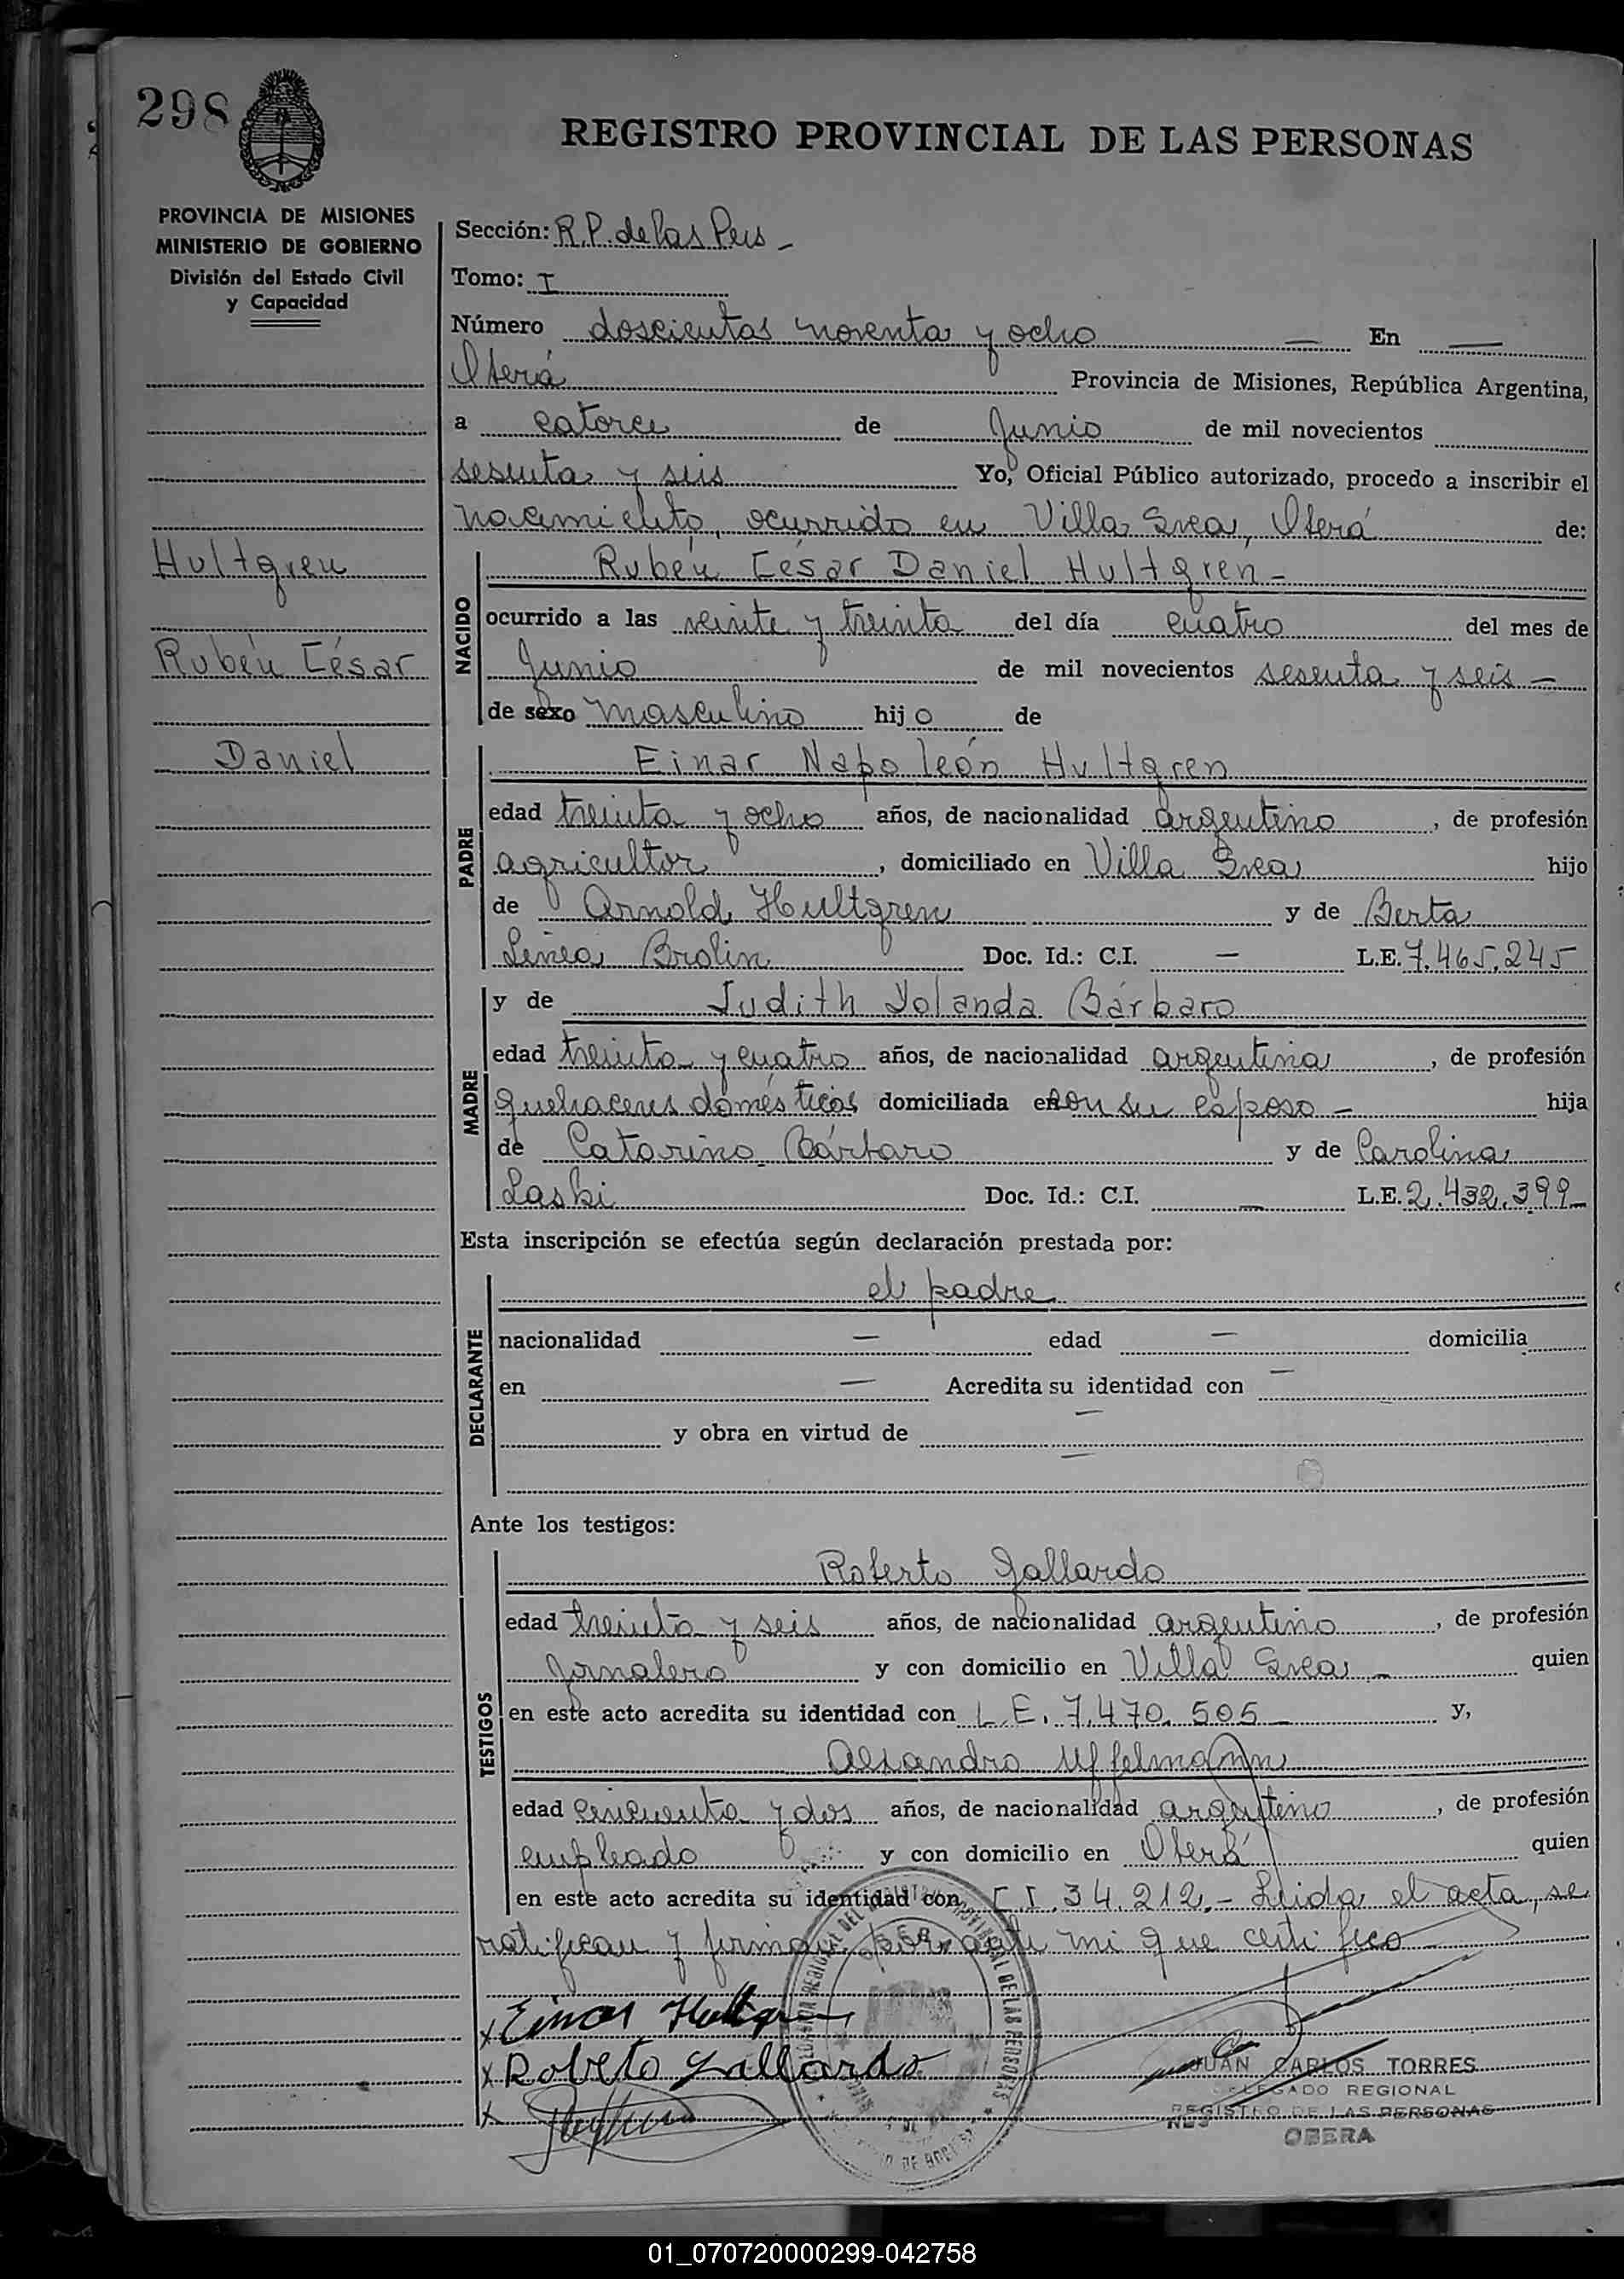 298
REGISTRO PROVINCIAL DE LAS PERSONAS
PROVINCIA DE MISIONES
MINISTERIO DE GOBIERNO
División del Estado Civil
y Capacidad
Hultgren
Rubén César
Daniel
Sección: R.P. de las Pers -
Tomo: I
Número doscientas noventa y ocho — En —
Oberá Provincia de Misiones, República Argentina,
a catorce de Junio de mil novecientos
sesenta y seis Yo, Oficial Público autorizado, procedo a inscribir el
nacimiento, ocurrido en Villa Svea, Oberá de:
NACIDO
Rubén César Daniel Hultgren -
ocurrido a las veinte y treinta del día cuatro del mes de
Junio de mil novecientos sesenta y seis —
de sexo masculino hijo de
PADRE
Einar Napoleón Hultgren
edad treinta y ocho años, de nacionalidad argentino, de profesión
agricultor, domiciliado en Villa Svea hijo
de Arnold Hultgren y de Berta
Linea Brolin Doc. Id.: C.I. — L.E. 7.465.245
MADRE
y de Judith Yolanda Bárbaro
edad treinta y cuatro años, de nacionalidad argentina, de profesión
quehaceres domésticos domiciliada en con su esposo -
hija
de Catarino Bárbaro y de Carolina
Laski Doc. Id.: C.I. — L.E. 2.432.399-
Esta inscripción se efectúa según declaración prestada por:
DECLARANTE
el padre
nacionalidad — edad — domicilia
en — Acredita su identidad con —
y obra en virtud de —
—
Ante los testigos:
TESTIGOS
Roberto Gallardo
edad treinta y seis años, de nacionalidad argentino, de profesión
Jornalero y con domicilio en Villa Svea - quien
en este acto acredita su identidad con L.E. 7.470.505 y,
Alsandro Uffelmann
edad cincuenta y dos años, de nacionalidad argentino, de profesión
empleado y con domicilio en Oberá quien
en este acto acredita su identidad con C.I. 34.212.- Leida el acta, se
ratifican y firman por ante mi que certifico
x Einar Hultgren
x Roberto Gallardo
x
JUAN CARLOS TORRES
DELEGADO REGIONAL
REGISTRO DE LAS PERSONAS
OBERA
01_070720000299-042758